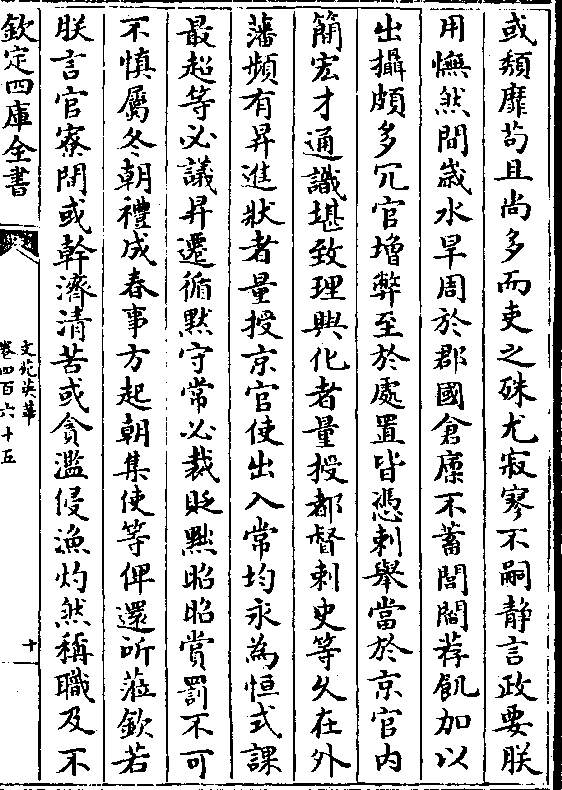 或頽靡苟且尚多而吏之殊尤寂寥不嗣靜言政要朕
用憮然間歲水旱周於郡國倉廩不蓄閭閻荐飢加以
出攝頗多冗官增弊至於處置皆憑刺舉當於京官内
簡宏才通識堪致理興化者量授都督刺史等久在外
藩頻有昇進狀者量授京官使出入常均永為恒式課
最超等必議昇遷循黙守常必裁貶黜昭昭賞罰不可
不慎屬冬朝禮成春事方起朝集使等俾還所蒞欽若
朕言官寮間或幹濟清苦或貪濫侵漁灼然稱職及不
欽定四庫全書
文苑英華
卷四百六十五
十